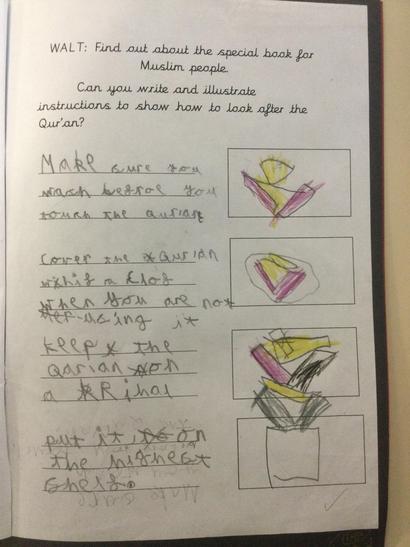 WALT: Find out about the special book for
Muslim people.
Can you write and illustrate
instructions to show how to look after the
Qur'an?
Make sure you
wash before you
touch the
Cover the Qur'an
a
when you are not
using it
keep the
on
a
put it on
the highest
shelf.